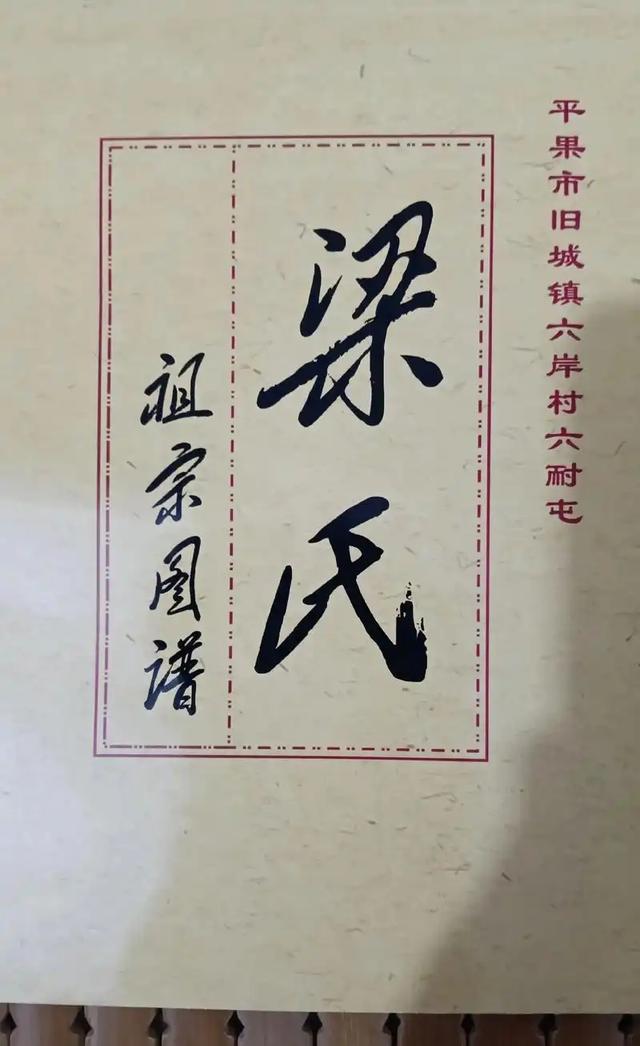 平果市旧城镇六岸村六耐屯
梁氏
祖宗图谱